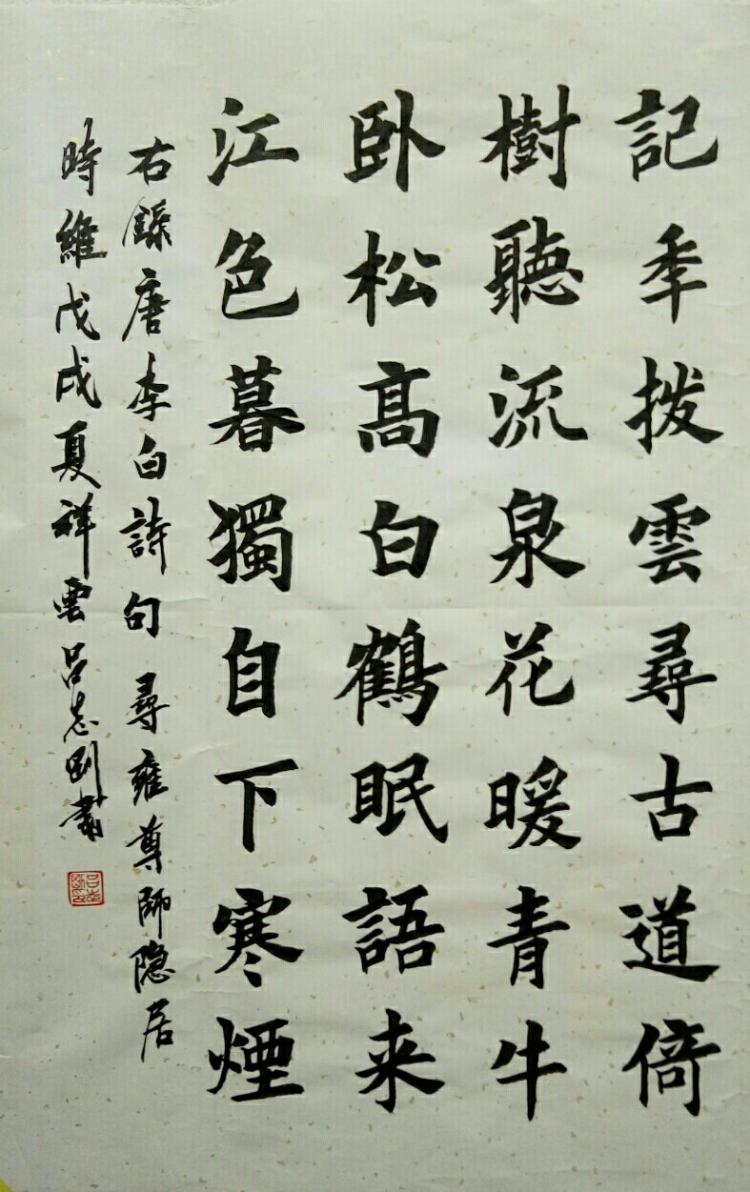 記秊拨雲尋古道倚
樹聽流泉花暖青牛
卧松髙白鶴眠語来
江色暮獨自下寒煙
右錄唐李白詩句 尋雍尊師隐居
時維戊戌夏祥雲吕志剛書